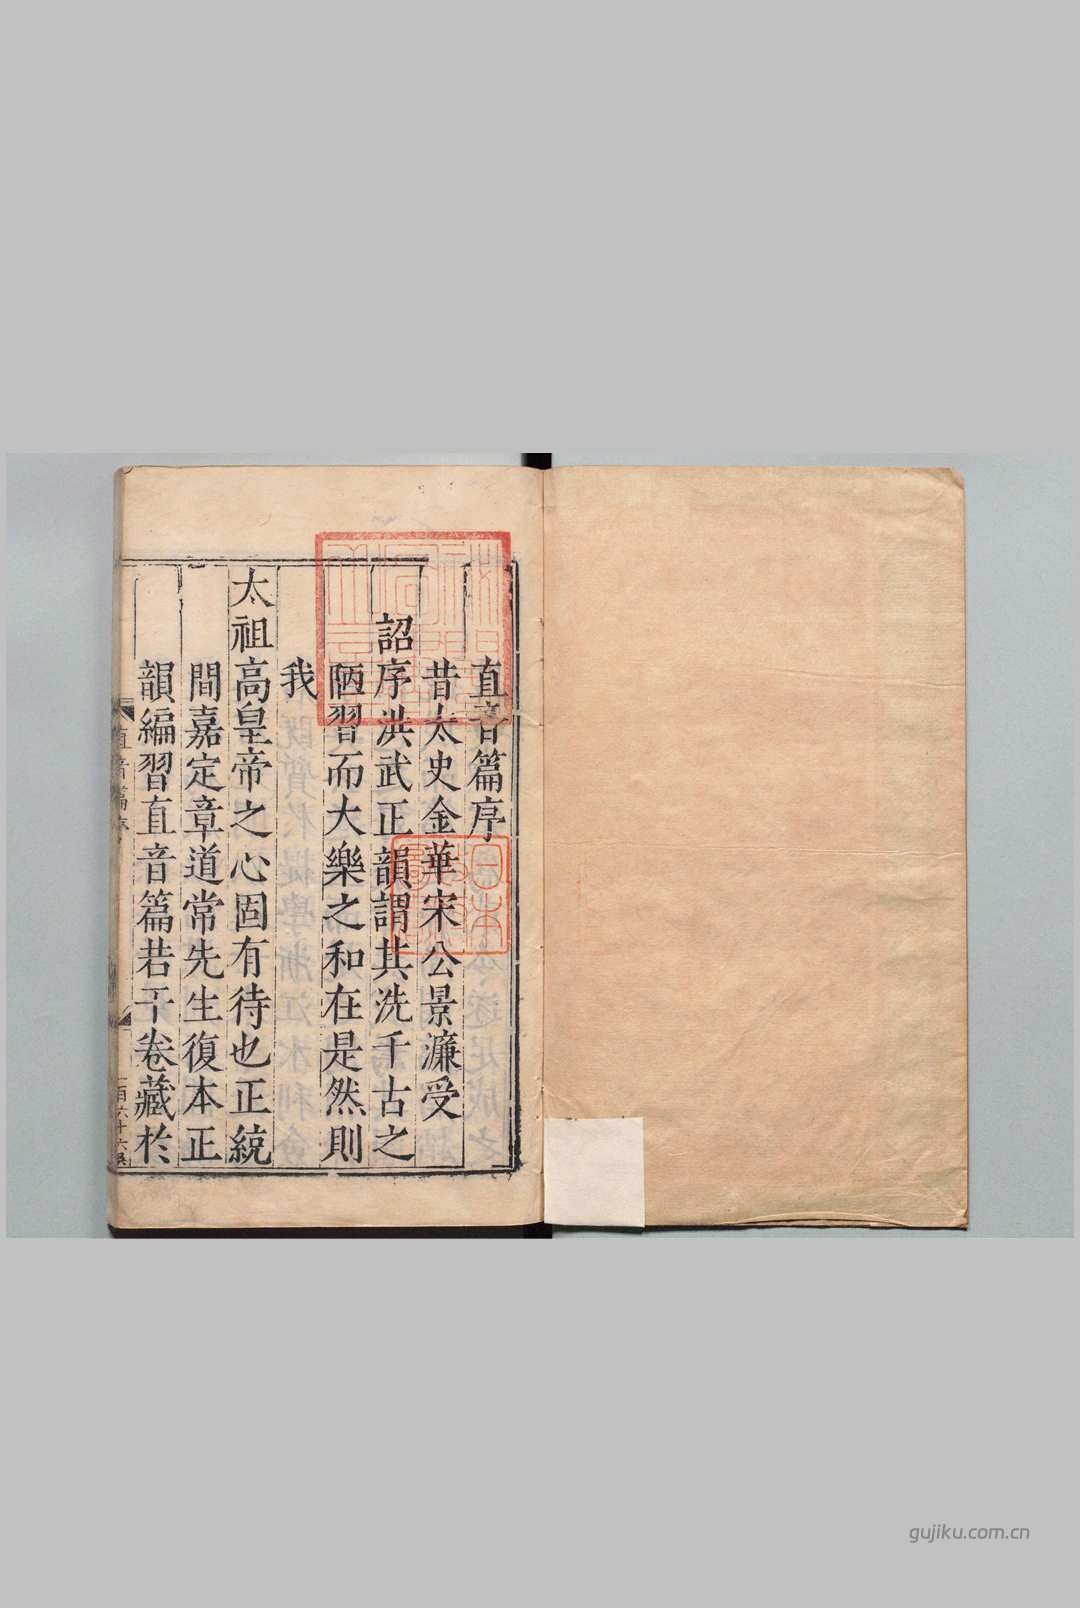 直音篇序
昔太史金華宋公景濂受
詔序洪武正韻謂其洗千古之
陋習而大樂之和在是然則
我
太祖高皇帝之心固有待也正統
間嘉定章道常先生復本正
韻編習直音篇若干卷藏於
直音篇序
日本
gujiku.com.cn